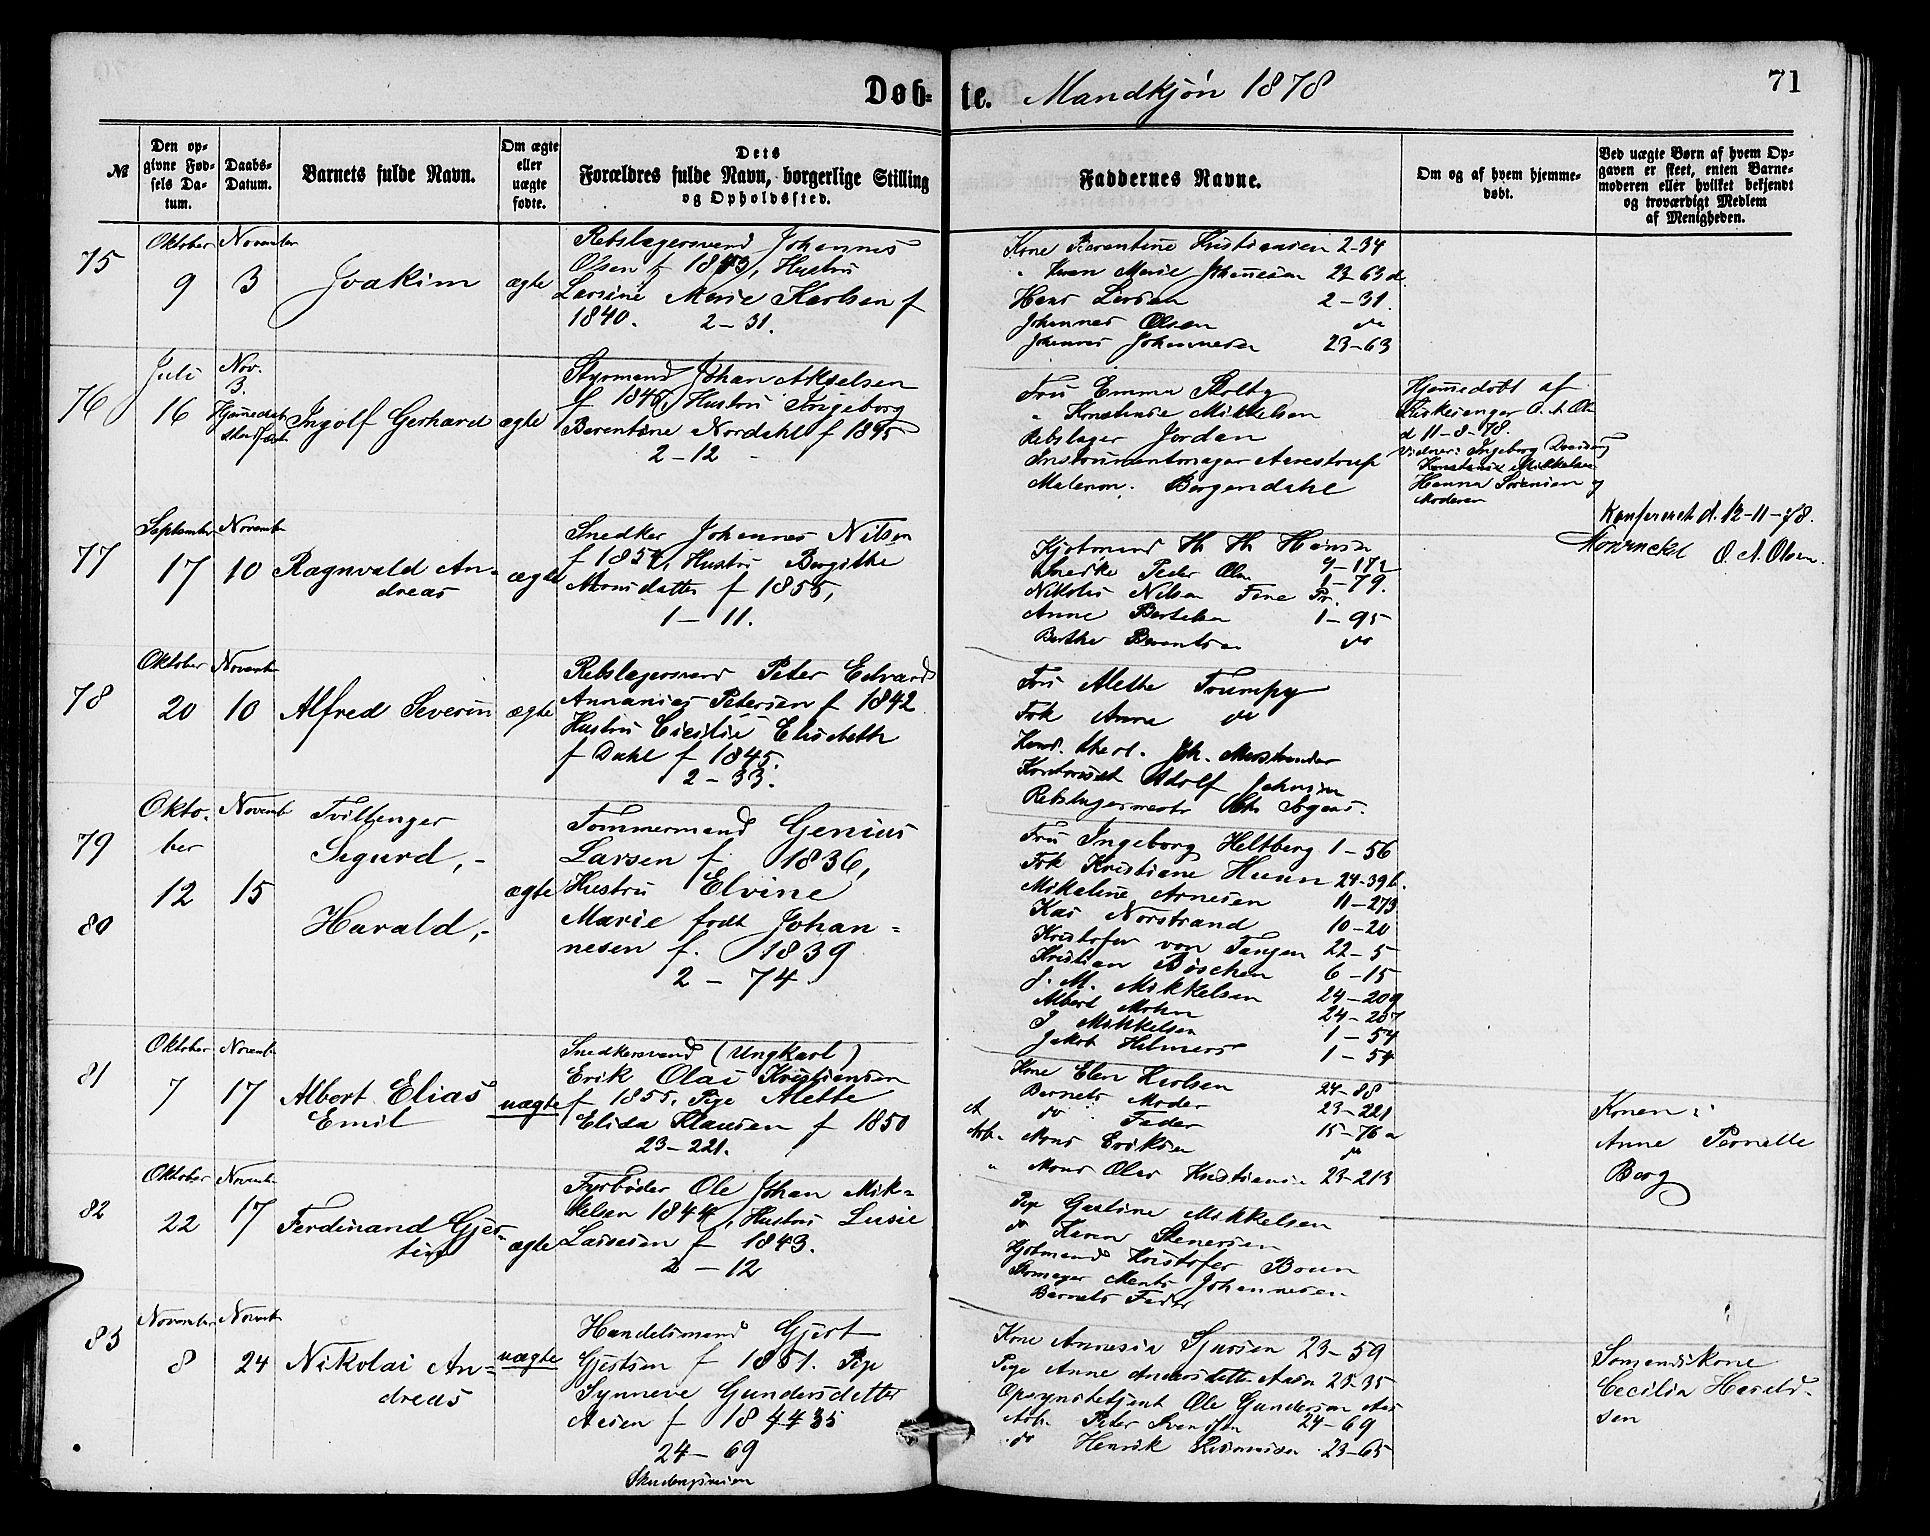 71
Døb-te. Mandkjøn 1878
№
Den op-
givne Fød-
sels Da-
tum.
Daabs-
Datum.
Barnets fulde Navn.
Om ægte
eller
uægte
fødte.
Dets
Forældres fulde Navn, borgerlige Stilling
og Opholdssted.
Faddernes Navne.
Om og af hvem hjemme-
døbt.
Ved uægte Børn af hvem Op-
gaven er skeet, enten Barne-
moderen eller hvilket bekjendt
og troværdigt Medlem
af Menigheden.
75
Oktober
9
November
3
Joakim
ægte
Rebslagersvend Johannes
Olsen f 1843, Hustru
Larsine Marie Karlsen f
1840. 2-31.
Kone Berentine Kristiansen 2-34
Marie Johannesen 23-63 d.
Hans Larsen 2-31.
Johannes Olsen do
Johannes Johannesen 23-63
76
Juli
16
Nov.
3.
Ingolf Gerhard
ægte
Styrmand Johan Akselsen
f 1846, Hustru Ingeborg
Berentine Nordahl f 1845
2-12
Fru Emma Stoltz
" Konstanse Mikkelsen
Rebslager Jordan
Instrumentmager Aarestrup
Bergendahl
Hjemmedøbt af
Kirkesanger O. A. Ols
d 11-8-78.
Vidner: Ingeborg
Konstanse Mikkelsen
Hanna Sørensen og
Moderen
Konfereret d. 12-11-78.
O. A. Olsen.
77
September
17
November
10
Ragnvald An-
dreas
ægte
Snedker Johannes Nilsen
f 1854, Hustru Bergithe
Monsdatter f 1855,
1-11.
Kjøbmand Th Th Hansen
Snedker Peder Olsen 1-79.
Nikolai Nilsen
Anne Bertelsen 1-95
Berthe Berentsen do
78
Oktober
20
November
10
Alfred Severin
ægte
Rebslagersvend Peter Edvard
Annanias Petersen f 1842
Hustru Cicilie Elisabeth
f Dahl f 1845.
2-33.
Fru Alethe Trumpy
Frk Anna do
Kontorist Adolf Johnsen
Rebslagermester
79
80
Okto-
ber
12
November
15
Tvillinger
Sigurd,-
Harald,-
ægte
Tømmermand Genius
Larsen f. 1836,
Hustru Elvine
Marie født Johan-
nesen f. 1839
2-74
Fru Ingeborg Heltberg 1-56
Frk Kristiane Huun 24-39 b.
Mikaline Arnesen 11-273
Kas Norstrand 10-20
Kristofer von Tangen 22-5
Kristian Bøschen 6-15
J. M. Mikkelsen 24-209
Albert Mohn 24-207
J Mikkelsen 1-54
Jakob Helmers 1-54
81
Oktober
7
November
17
Albert Elias
Emil
uægte
Snedkersvend (Ungkarl)
Erik Olai Kristiansen
f 1855, Pige Alette
Elisa Klausen f 1850
23-221.
Kone Elen Karlsen 24-88
Barnets Moder 23-221
do Fader 15-76 a
Arb. Mons Eriksen do
" Mons Olai Kristiansen 23-213
Konen:
Anne Pernille
Berg
82
Oktober
22
November
17
Ferdinand Gjer-
tin
ægte
Fyrbøder Ole Johan Mik-
kelsen 1844, Hustru Lusie
Larssen f 1843.
2-12
Pige Gustine Mikkelsen
do Karen Stenersen
Kjøbmand Kristofer Brun
Skomager Johannesen
Barnets Fader
83
November
8
November
24
Nikolai An-
dreas
uægte
Handelsmand Gjert
Gjertsen f 1851. Pige
Synneve Gundersdatter
Aasen f 1844 35
24-69
Kone Annesia Sjursen 23-59
Pige Anne Andersdatter Aasen 23-35
Opsynsbetjent Ole Gundersen Aas
Arb. Peter Svendsen 24-69
do Henrik Rasmussen 23-65
Sømandskone
Cecilia Harald-
sen